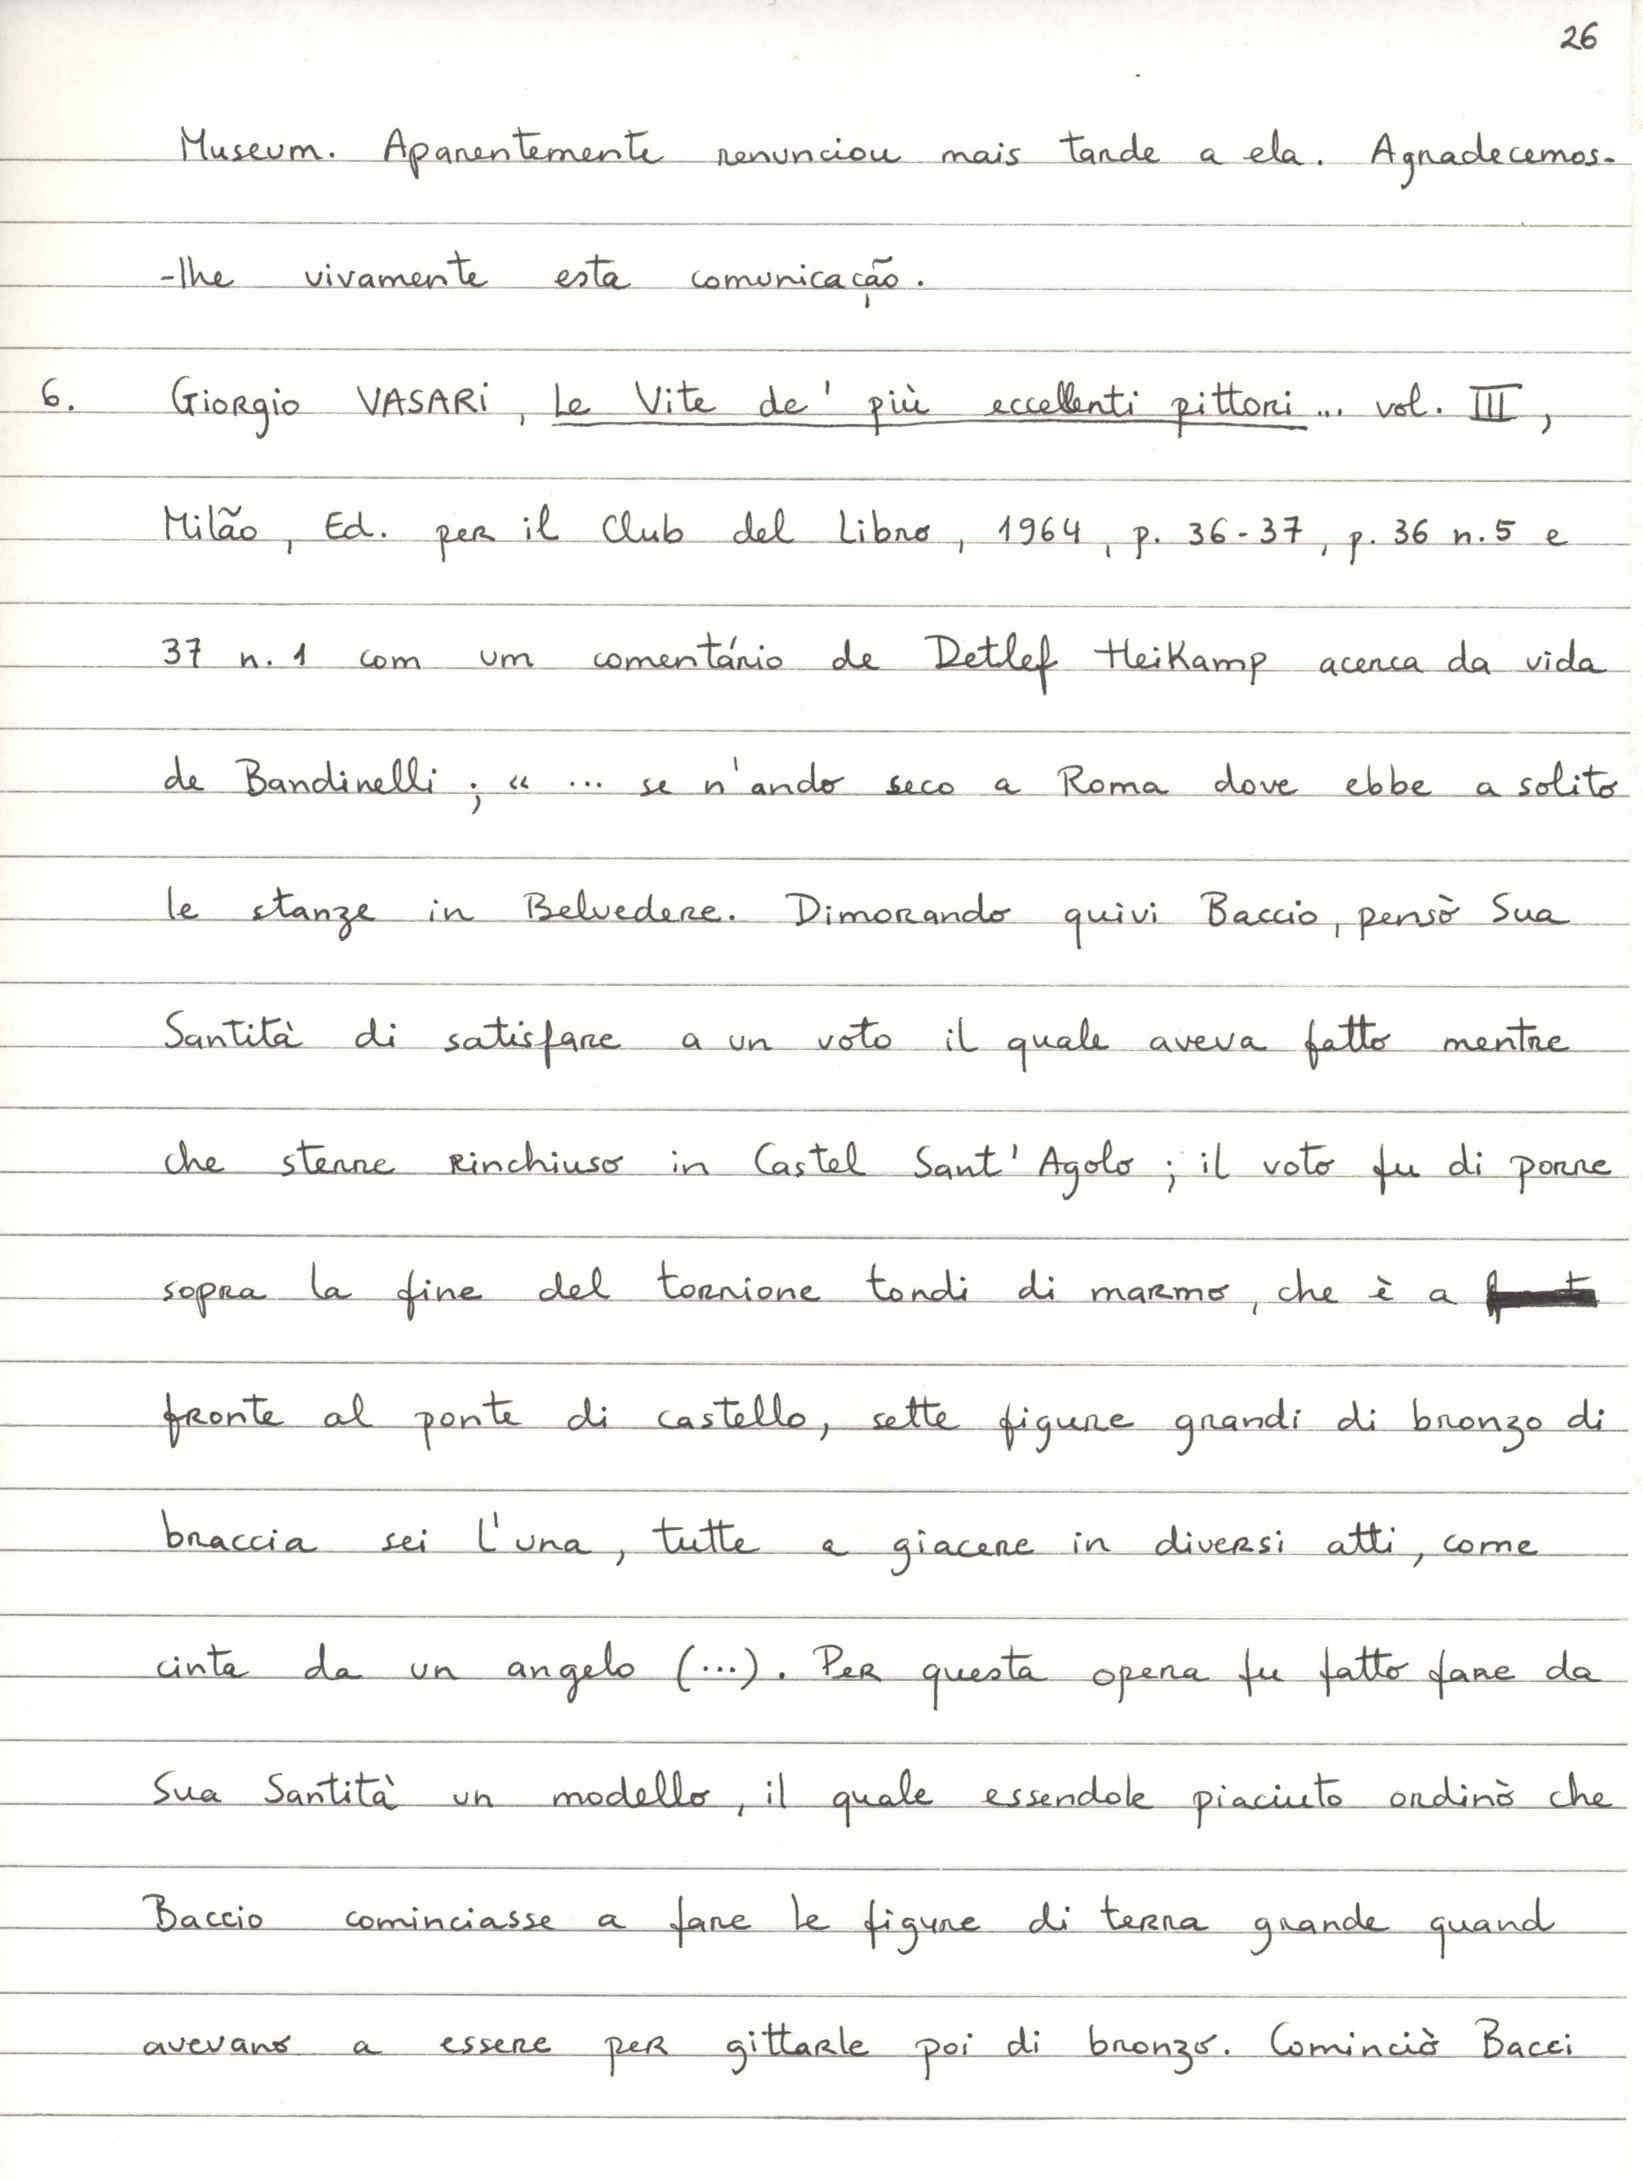 26
Museum. Aparentemente renunciou mais tarde a ela. Agradecemos-
-lhe vivamente esta comunicação.
6. Giorgio VASARI, Le Vite de' più eccellenti pittori... vol. III,
Milão, Ed. per il Club del Libro, 1964, p. 36-37, p. 36 n. 5 e
37 n. 1 com um comentário de Detlef Heikamp acerca da vida
de Bandinelli; « ... se n'ando seco a Roma dove ebbe a solito
le stanze in Belvedere. Dimorando quivi Baccio, pensò Sua
Santità di satisfare a un voto il quale aveva fatto mentre
che sterre rinchiuso in Castel Sant' Agolo; il voto fu di porre
sopra la fine del tornione tondi di marmo, che è a
fronte al ponte di castello, sette figure grandi di bronzo di
braccia sei l'una, tutte a giacere in diversi atti, come
cinta da un angelo (...). Per questa opera fu fatto fare da
Sua Santità un modello, il quale essendole piaciuto ordinò che
Baccio cominciasse a fare le figure di terra grande quand
avevano a essere per gittarle poi di bronzo. Cominciò Bacci